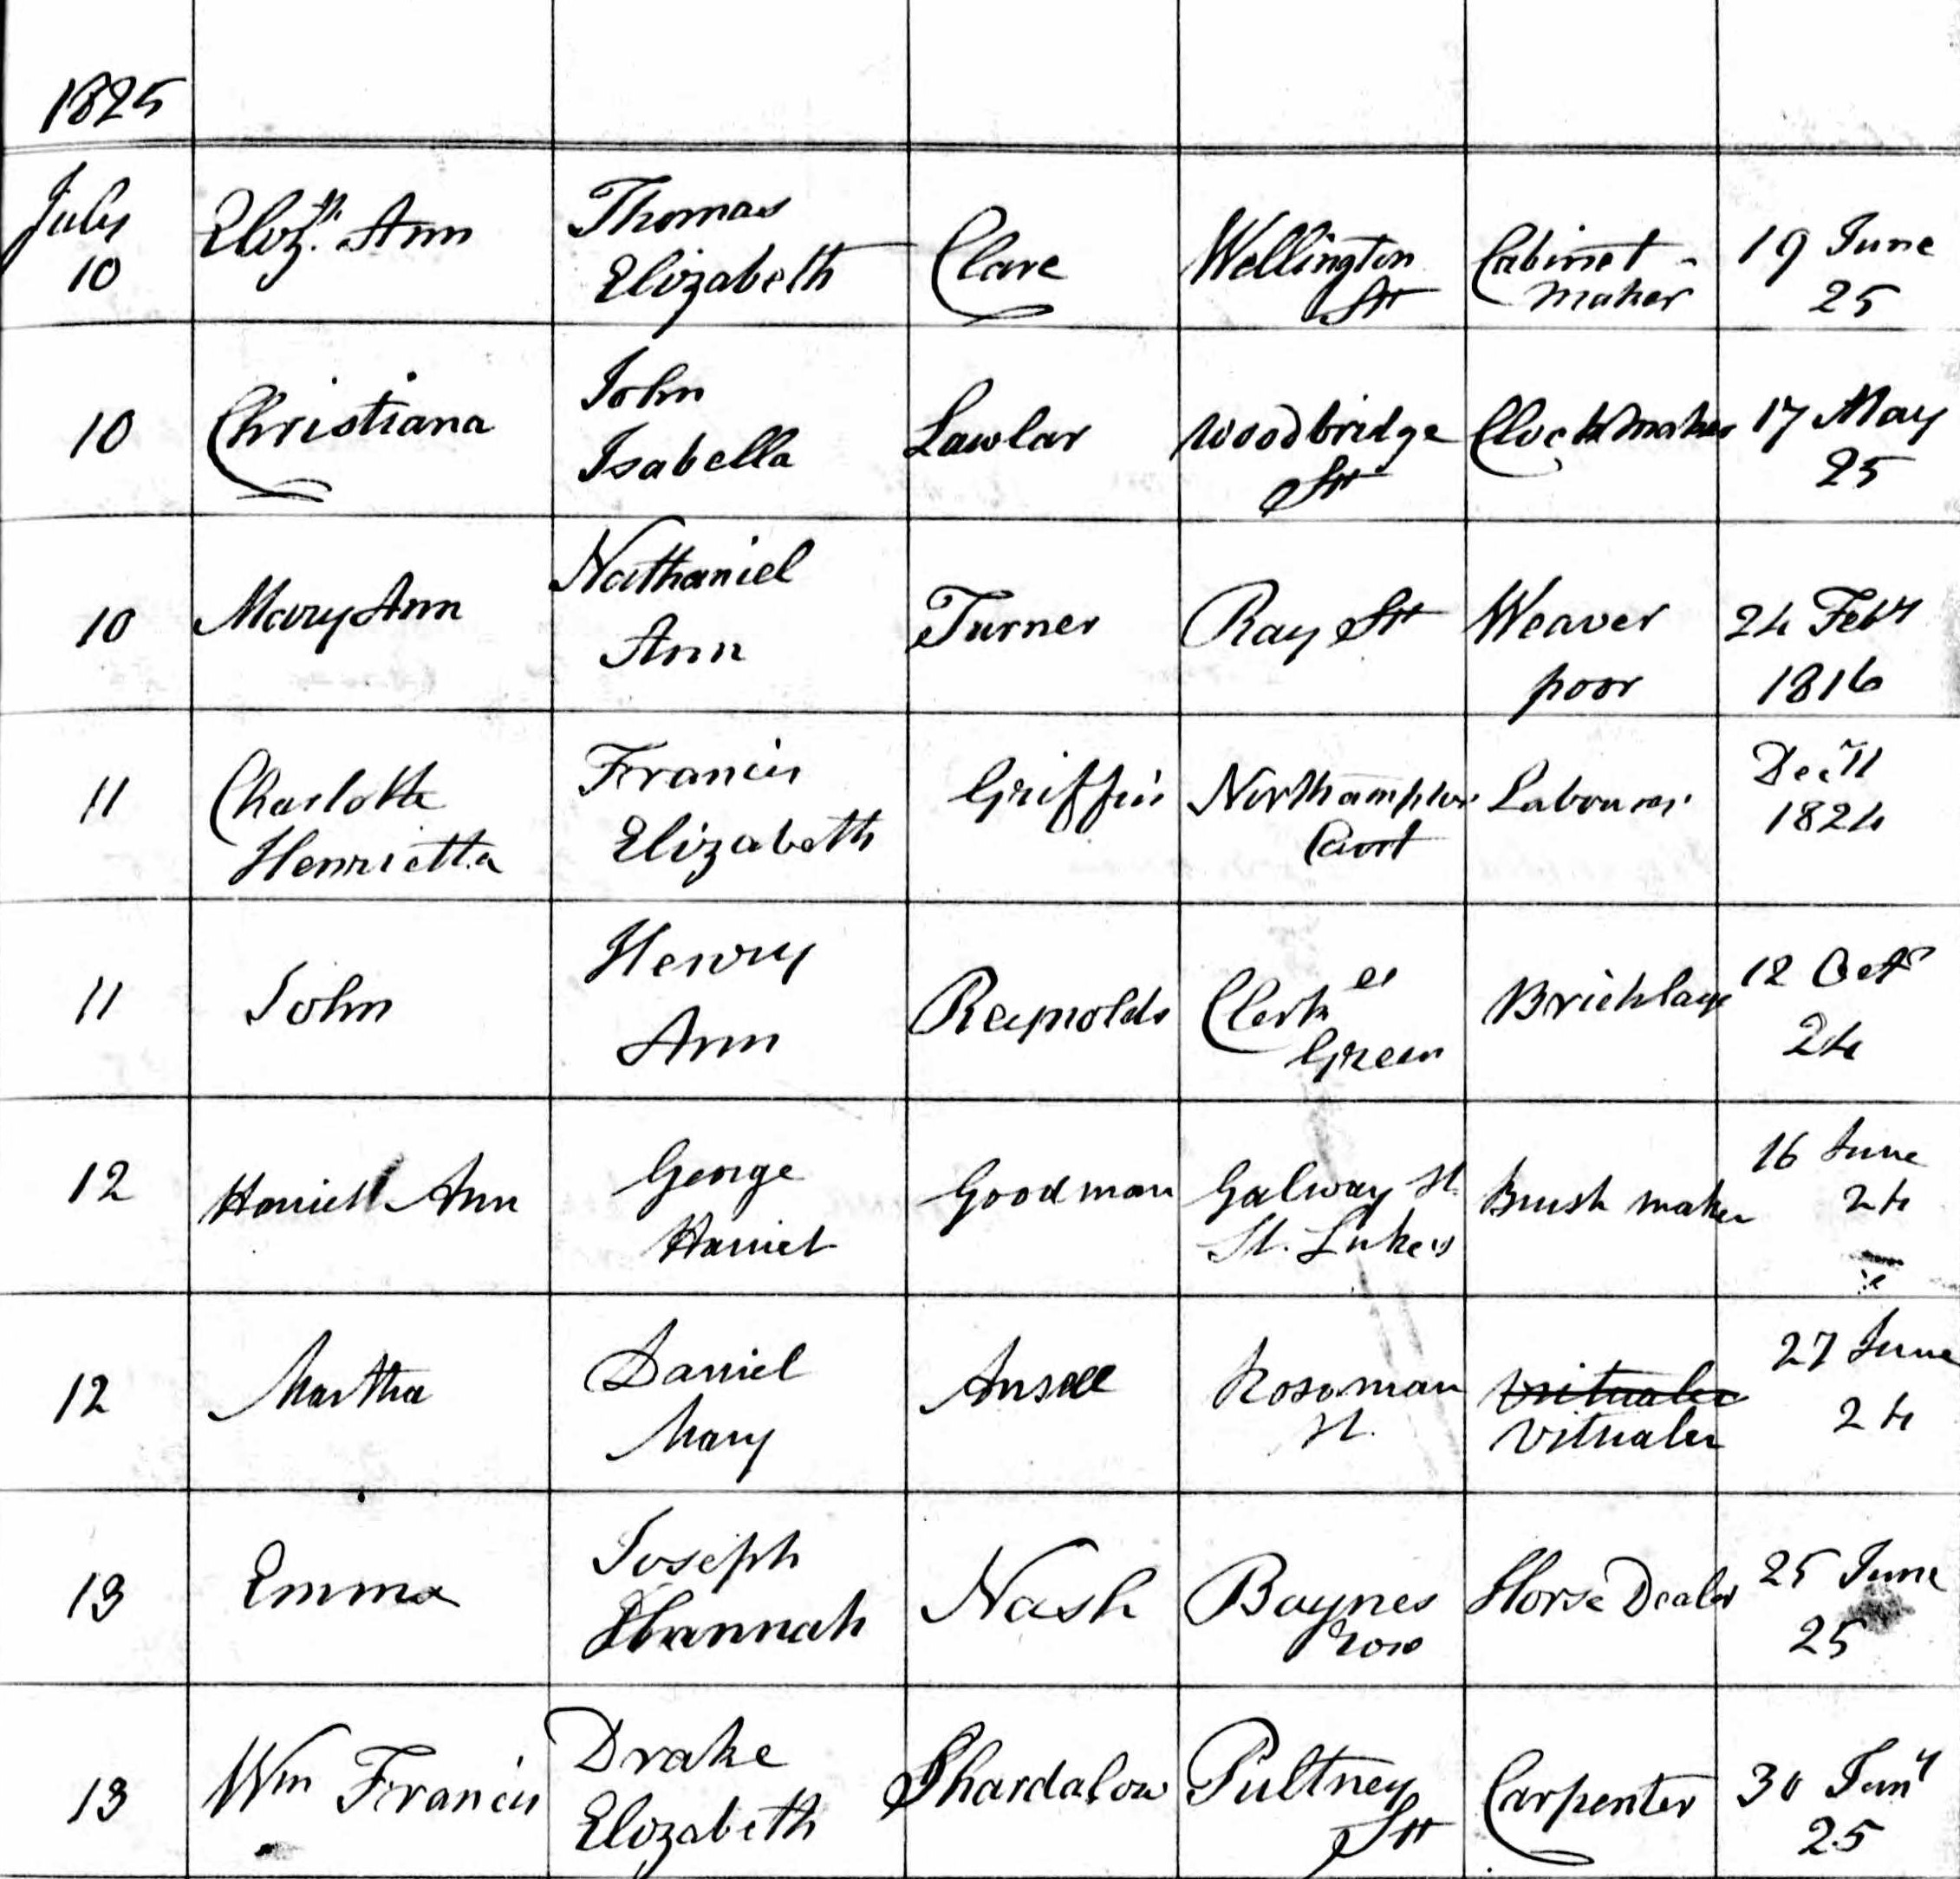 1825
July 10 Elizth. Ann Thomas Elizabeth Clare Wellington St Cabinet-maker 19 June 25
10 Christiana John Isabella Lawlar Woodbridge St Clockmaker 17 May 25
10 Mary Ann Nathaniel Ann Turner Ray St Weaver poor 24 Feby 1816
11 Charlotte Henrietta Francis Elizabeth Griffin Northampton Court Labourer Decr 11 1824
11 John Henry Ann Reynolds Clerkes Green Bricklayer 12 Octr 24
12 Harriett Ann George Harriet Goodman Galway St. St. Lukes Brush maker 16 June 24
12 Martha Daniel Mary Ansell Rosoman St. Vitualer 27 June 24
13 Emma Joseph Hannah Nash Baynes Row Horse Dealer 25 June 25
13 Wm Francis Drake Elizabeth Shardalow Pultney St Carpenter 30 Jany 25